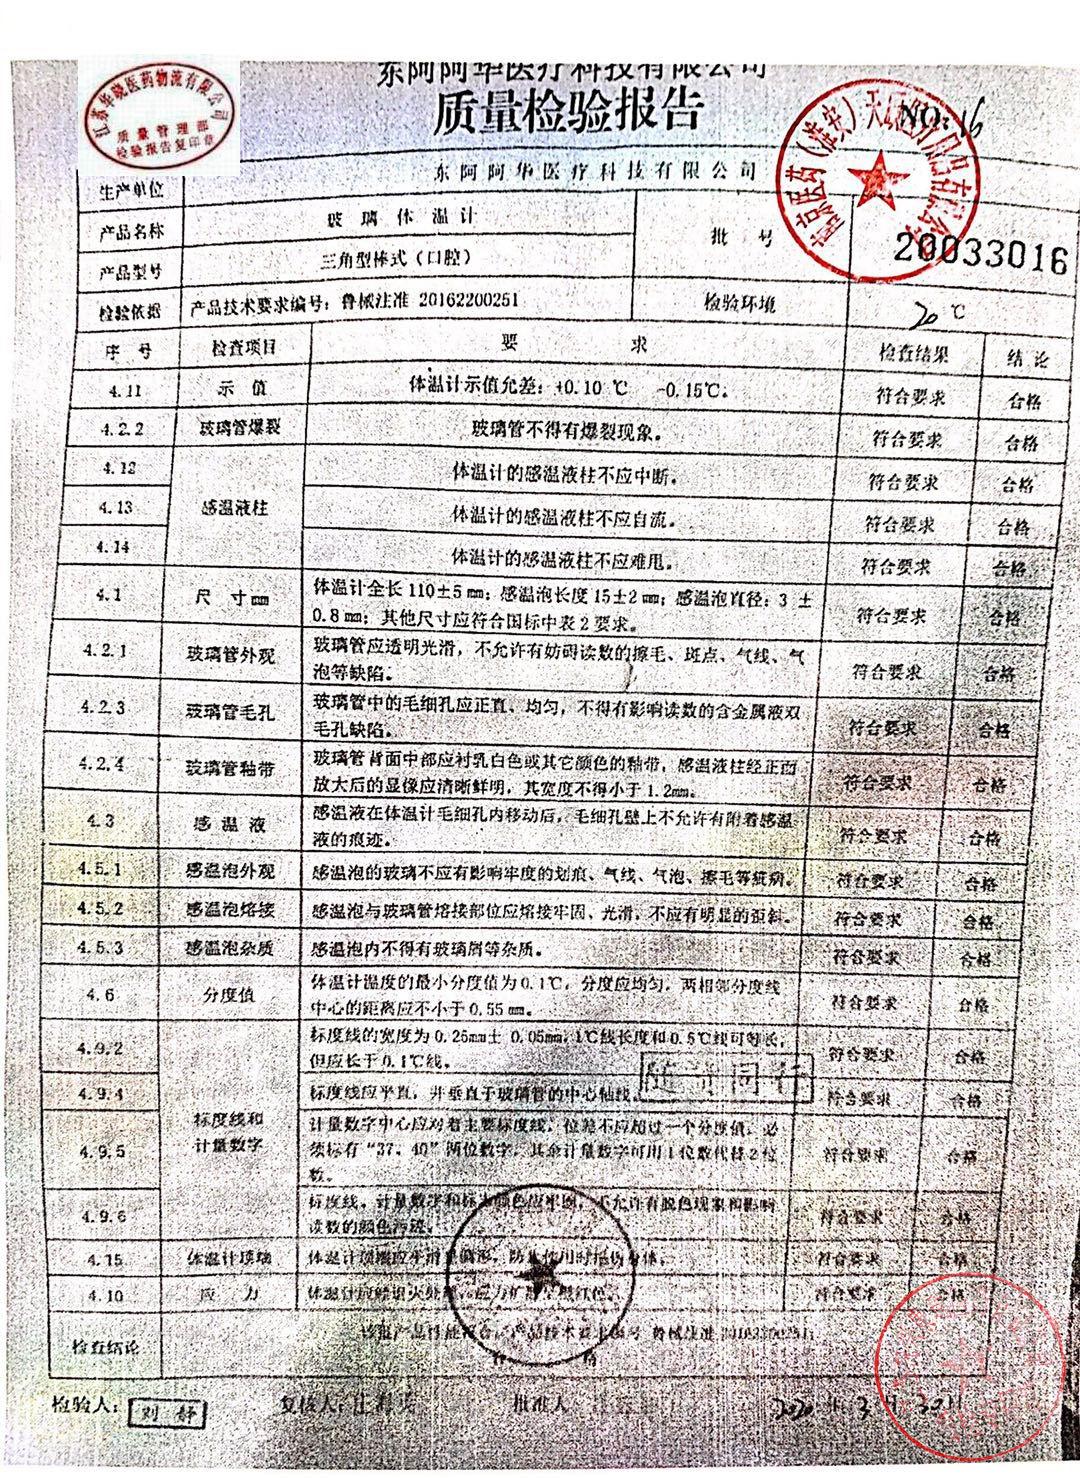 东阿阿华医疗科技有限公司
质量检验报告
NO: 16
江苏华晓医药物流有限公司
质量管理部
检验报告复印章
生产单位 东阿阿华医疗科技有限公司
产品名称 玻璃体温计 批号 20033016
产品型号 三角型棒式（口腔）
检验依据 产品技术要求编号：鲁械注准 20162200251 检验环境 20 ℃
序号 检查项目 要求 检查结果 结论
4.11 示值 体温计示值允差：+0.10℃ -0.15℃。 符合要求 合格
4.2.2 玻璃管爆裂 玻璃管不得有爆裂现象。 符合要求 合格
4.12 感温液柱 体温计的感温液柱不应中断。 符合要求 合格
4.13 体温计的感温液柱不应自流。 符合要求 合格
4.14 体温计的感温液柱不应难甩。 符合要求 合格
4.1 尺寸mm 体温计全长 110±5mm；感温泡长度 15±2mm；感温泡直径：3±
0.8mm；其他尺寸应符合国标中表2要求。 符合要求 合格
4.2.1 玻璃管外观 玻璃管应透明光滑，不允许有妨碍读数的擦毛、斑点、气线、气
泡等缺陷。 符合要求 合格
4.2.3 玻璃管毛孔 玻璃管中的毛细孔应正直、均匀，不得有影响读数的含金属液双
毛孔缺陷。 符合要求 合格
4.2.4 玻璃管釉带 玻璃管背面中部应衬乳白色或其它颜色的釉带，感温液柱经正面
放大后的显像应清晰鲜明，其宽度不得小于1.2mm。 符合要求 合格
4.3 感温液 感温液在体温计毛细孔内移动后，毛细孔壁上不允许有附着感温
液的痕迹。 符合要求 合格
4.5.1 感温泡外观 感温泡的玻璃不应有影响牢度的划痕、气线、气泡、擦毛等疵病。 符合要求 合格
4.5.2 感温泡熔接 感温泡与玻璃管熔接部位应熔接牢固、光滑，不应有明显的歪斜。 符合要求 合格
4.5.3 感温泡杂质 感温泡内不得有玻璃屑等杂质。 符合要求 合格
4.6 分度值 体温计温度的最小分度值为0.1℃，分度应均匀，两相邻分度线
中心的距离应不小于0.55mm。 符合要求 合格
4.9.2 标度线和计量数字 标度线的宽度为0.25mm±0.05mm，1℃线长度和0.5℃线可等长，
但应长于0.1℃线。 符合要求 合格
4.9.4 标度线应平直，并垂直于玻璃管的中心轴线。 符合要求 合格
随货同行
4.9.5 计量数字中心应对着主要标度线，位差不应超过一个分度值，必
须标有“37、40”两位数字，其余计量数字可用1位数代替2位
数。 符合要求 合格
4.9.6 标度线、计量数字和标 颜色应牢固，不允许有脱色现象和影响
读数的颜色污迹。 符合要求 合格
4.15 体温计顶端 体温计顶端应平滑 ，防止使用时 伤 体。 符合要求 合格
4.10 应力 体温计应经退火处理，应力 红色。 符合要求 合格
检查结论 该批产品性能符合 产品技术要求编号 鲁械注准 20162200251
合格
检验人： 刘静 复核人： 批准人 2020年3月30日